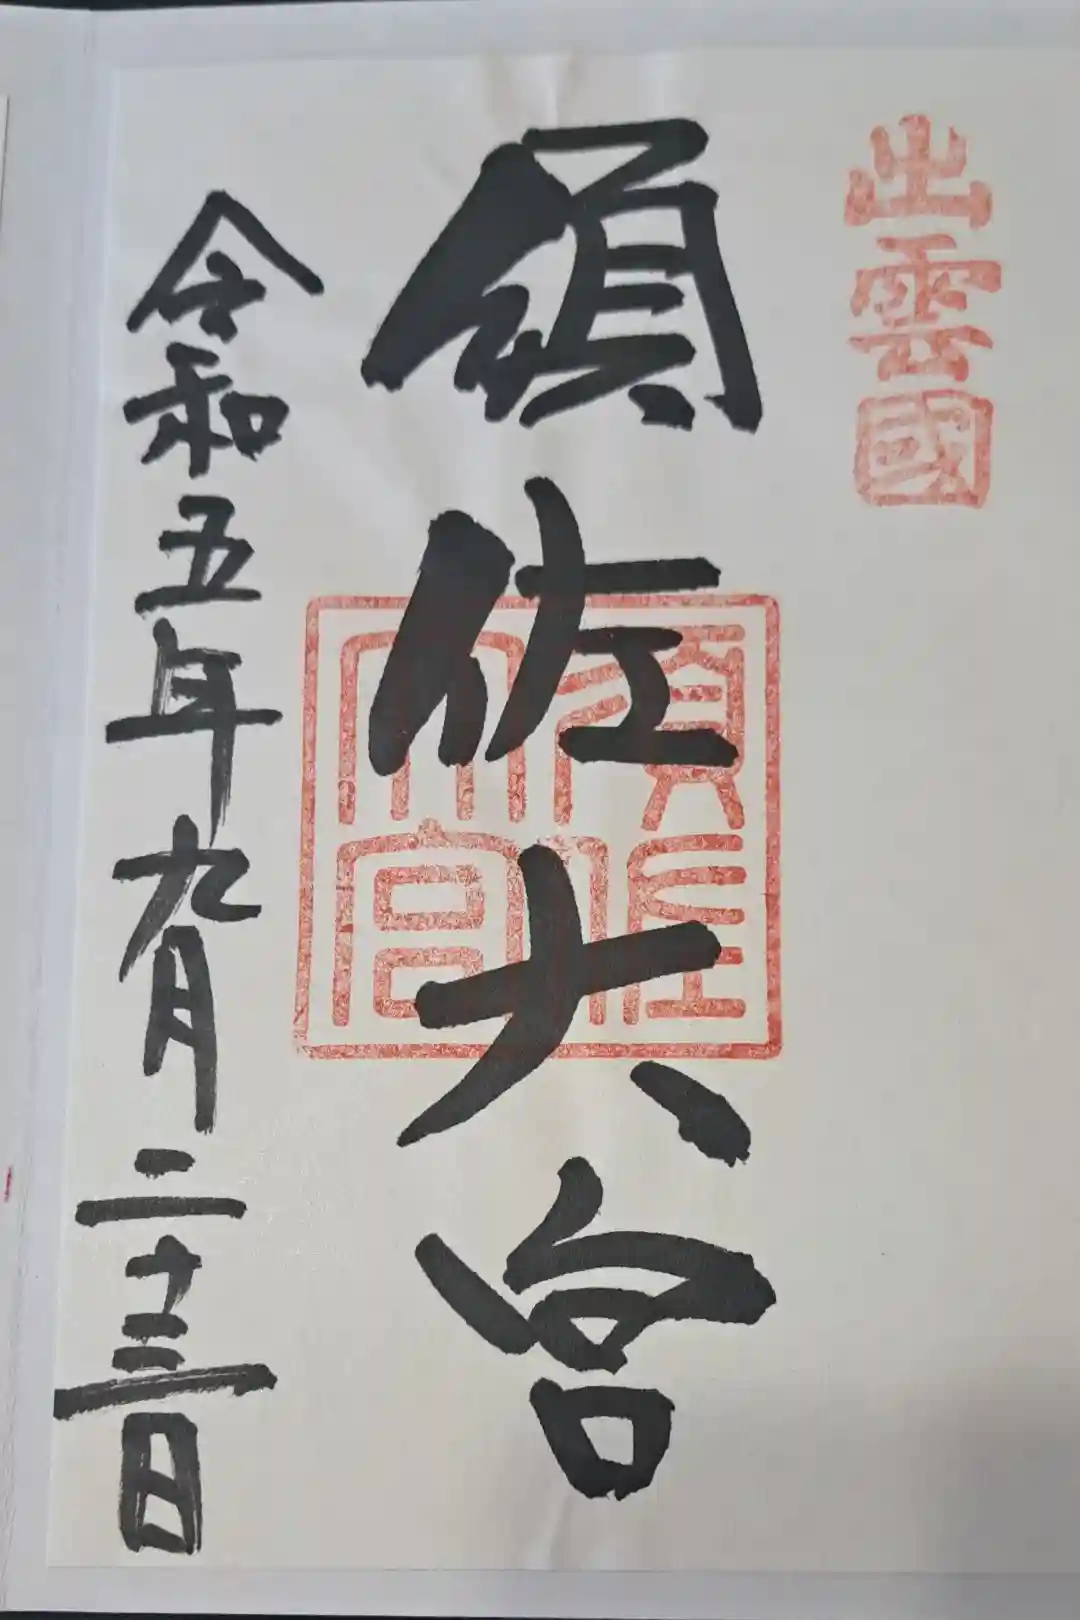 出雲國
須佐大宮
須佐
大宮
令和五年九月二十三日